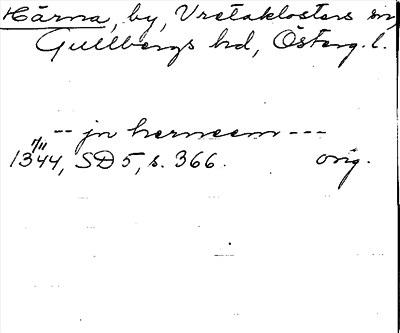 Härna, by, Vretaklosters sn,
Gullbergs hd, Österg. l.
-- jn herneem ---
7/11
1344, SD 5, s. 366. orig.